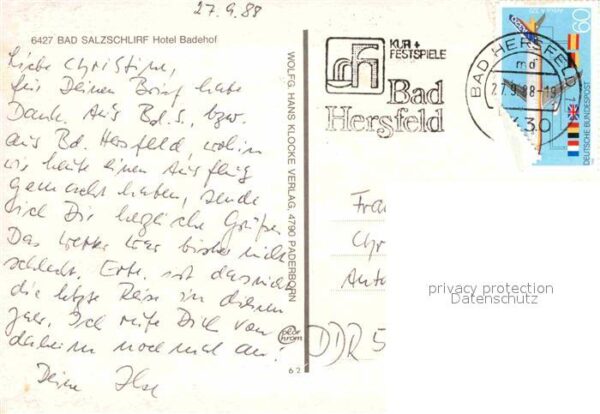 27.9.88
6427 BAD SALZSCHLIRF Hotel Badehof
Liebe Christine,
für Deinen Brief habe
Dank. Aus Bd.S., bzw.
aus Bd. Hersfeld, wohin
wir heute einen Ausflug
gemacht haben, sende
ich Dir herzliche Grüße.
Das Wetter war bisher nicht
schlecht. Evtl. ist das nicht
die letzte Reise in diesem
Jahr. Ich rufe Dich von
daheim noch mal an!
Deine Ilse
WOLFG. HANS KLOCKE VERLAG, 4790 PADERBORN
color chrom
62
KUR +
FESTSPIELE
Bad
Hersfeld
BAD HERSFELD 1
md
27.9.88-19
6430
60
DEUTSCHE BUNDESPOST
Frau
Chr
DDR 5
privacy protection
Datenschutz